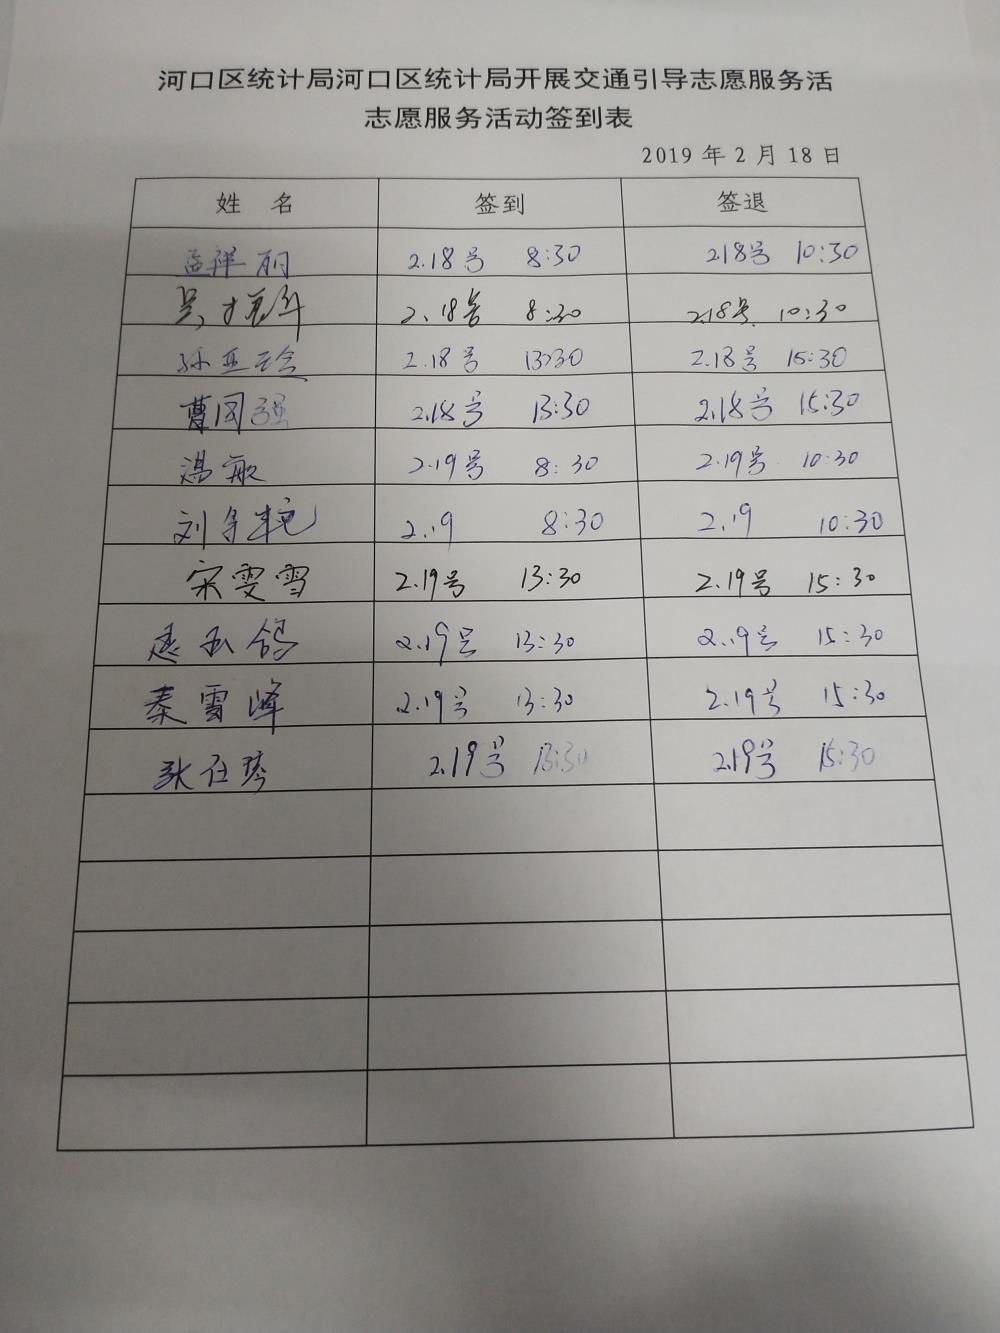 河口区统计局河口区统计局开展交通引导志愿服务活
志愿服务活动签到表
2019 年 2 月 18 日
姓 名 签到 签退
孟祥丽 2.18号 8:30 218号 10:30
2.18号 8:30 218号 10:30
孙亚 2.18号 13:30 2.18号 15:30
曹国强 2.18号 13:30 2.18号 15:30
汤敏 2.19号 8:30 2.19号 10:30
刘 2.19 8:30 2.19 10:30
宋雯雪 2.19号 13:30 2.19号 15:30
玉鸽 2.19号 13:30 2.19号 15:30
秦雪峰 2.19号 13:30 2.19号 15:30
张 2.19号 13:30 2.19号 15:30